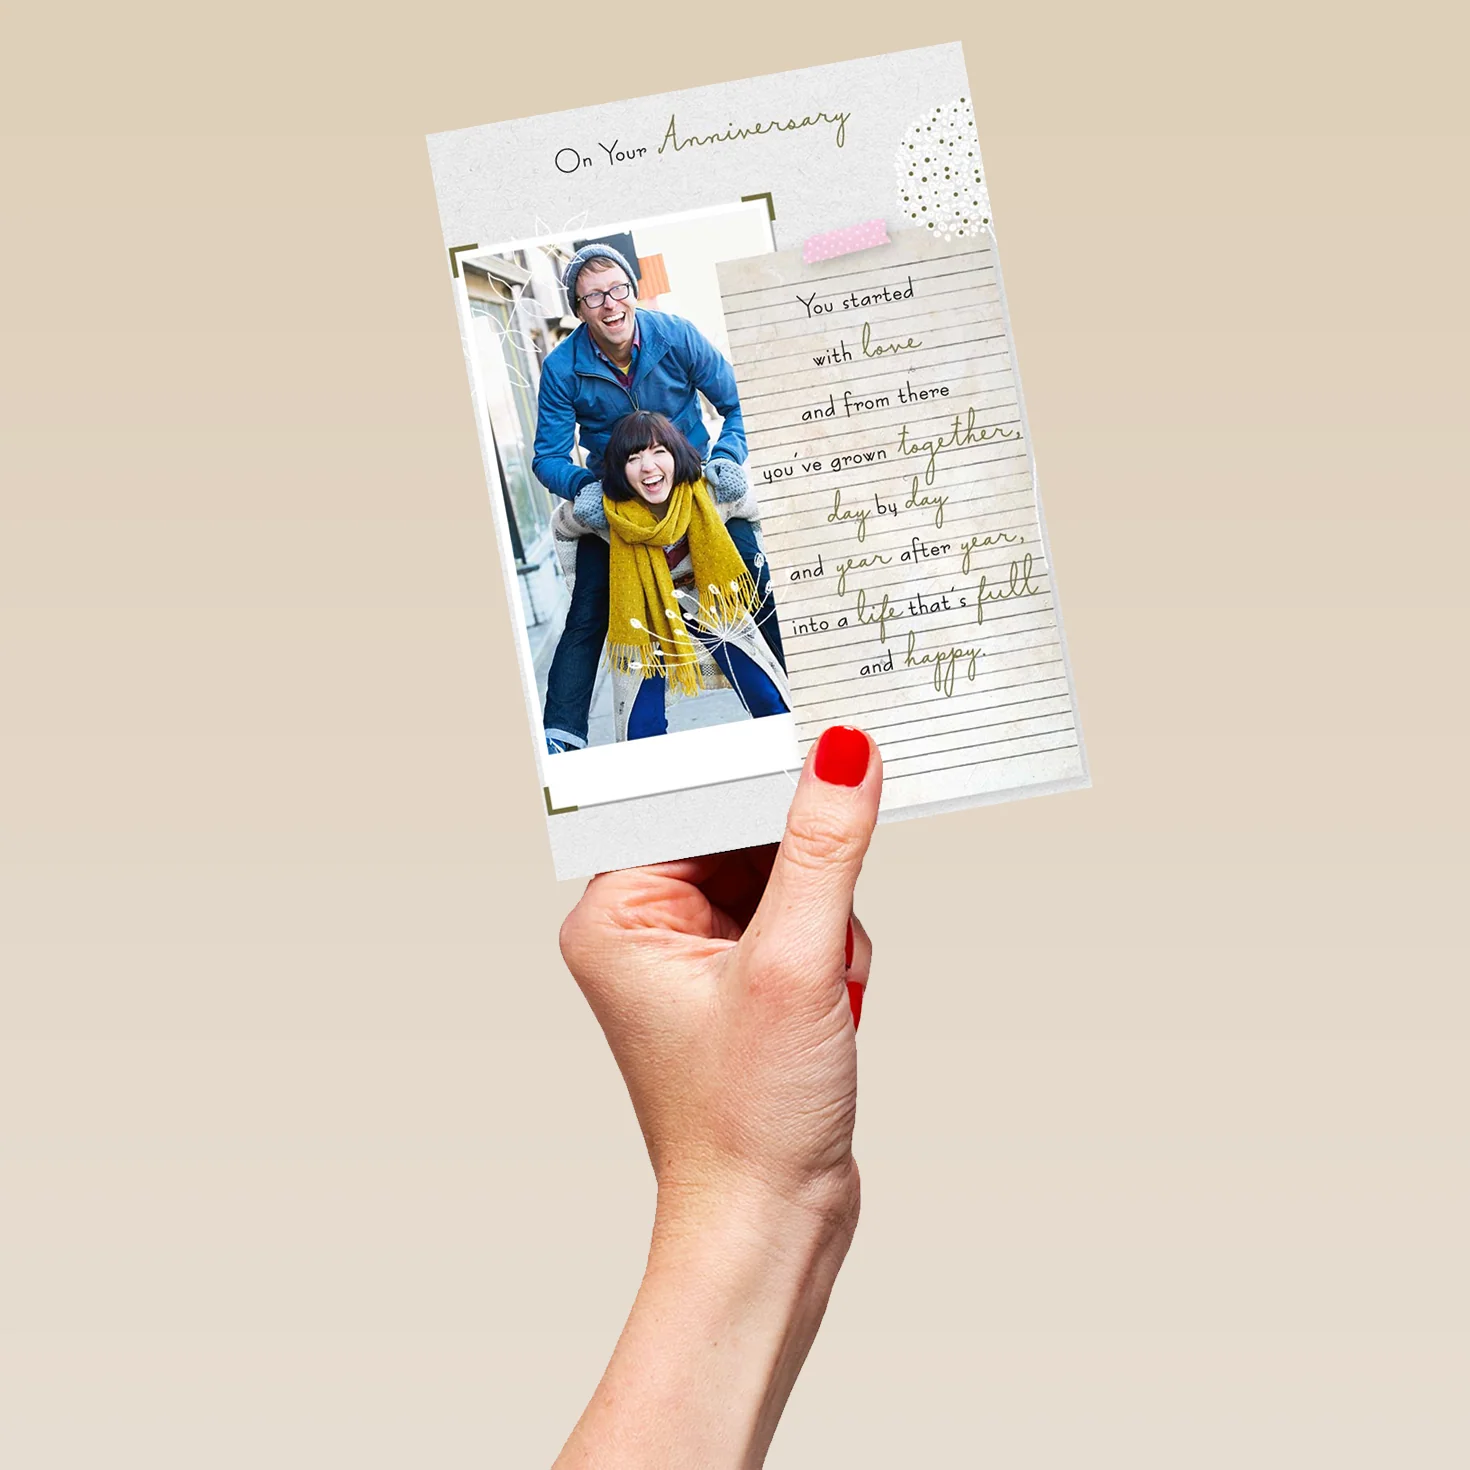 On Your Anniversary
You started
with love
and from there
you've grown together,
day by day
and year after year,
into a life that's full
and happy.